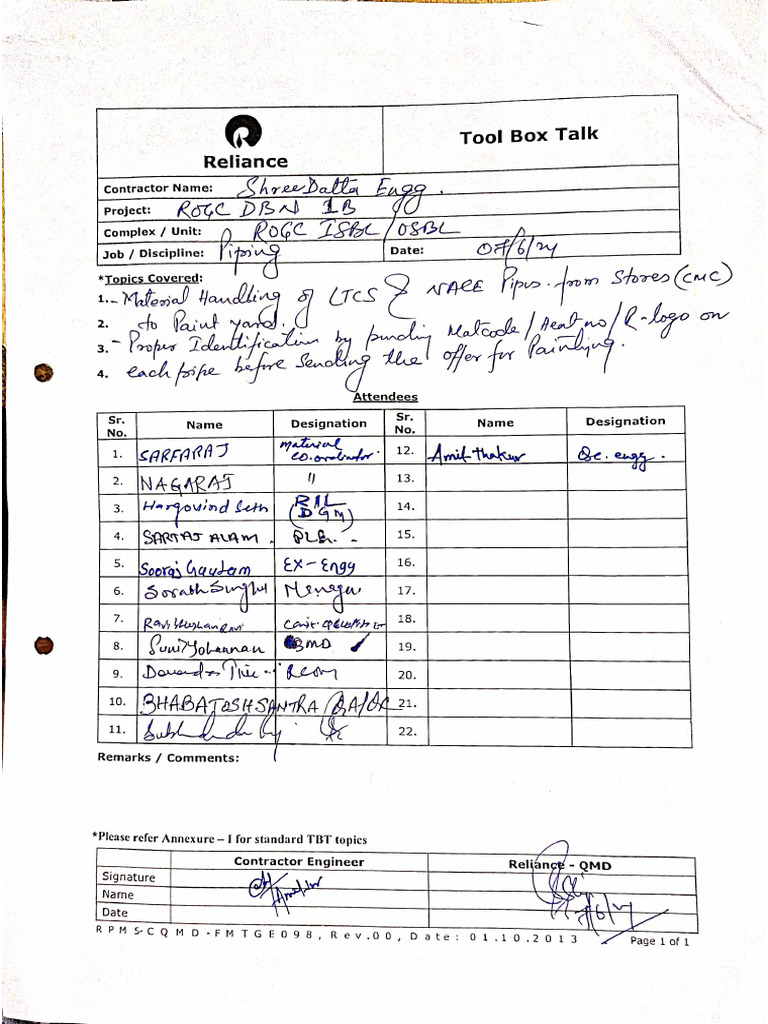 Reliance
Tool Box Talk
Contractor Name: Shree Datta Engg.
Project: ROGC DBN 1B
Complex / Unit: ROGC ISBL / OSBL
Job / Discipline: Piping Date: 07/6/24
*Topics Covered:
1. - Material Handling of LTCS & NACE Pipes from Stores (CMC)
2. to Paint yard.
3. - Proper Identification by punching Matcode / Heat-no / R-logo on
4. each pipe before sending the offer for Painting.
Attendees
Sr. No. Name Designation Sr. No. Name Designation
1. SARFARAJ Material co.ordinator. 12. Amit Thakur Qc. engg.
2. NAGARAJ " 13.
3. Hargovind Seth RIL (DGM) 14.
4. SARTAJ ALAM. 15.
5. Sooraj Gautam EX-Engg 16.
6. Sorabh Singh 17.
7. 18.
8. QMD 19.
9. 20.
10. BHABATOSH SANTRA QA/QC 21.
11. 22.
Remarks / Comments:
*Please refer Annexure – I for standard TBT topics
Contractor Engineer Reliance - QMD
Signature
Name
Date
RPMS-CQMD-FMTGE098, Rev.00, Date: 01.10.2013
Page 1 of 1